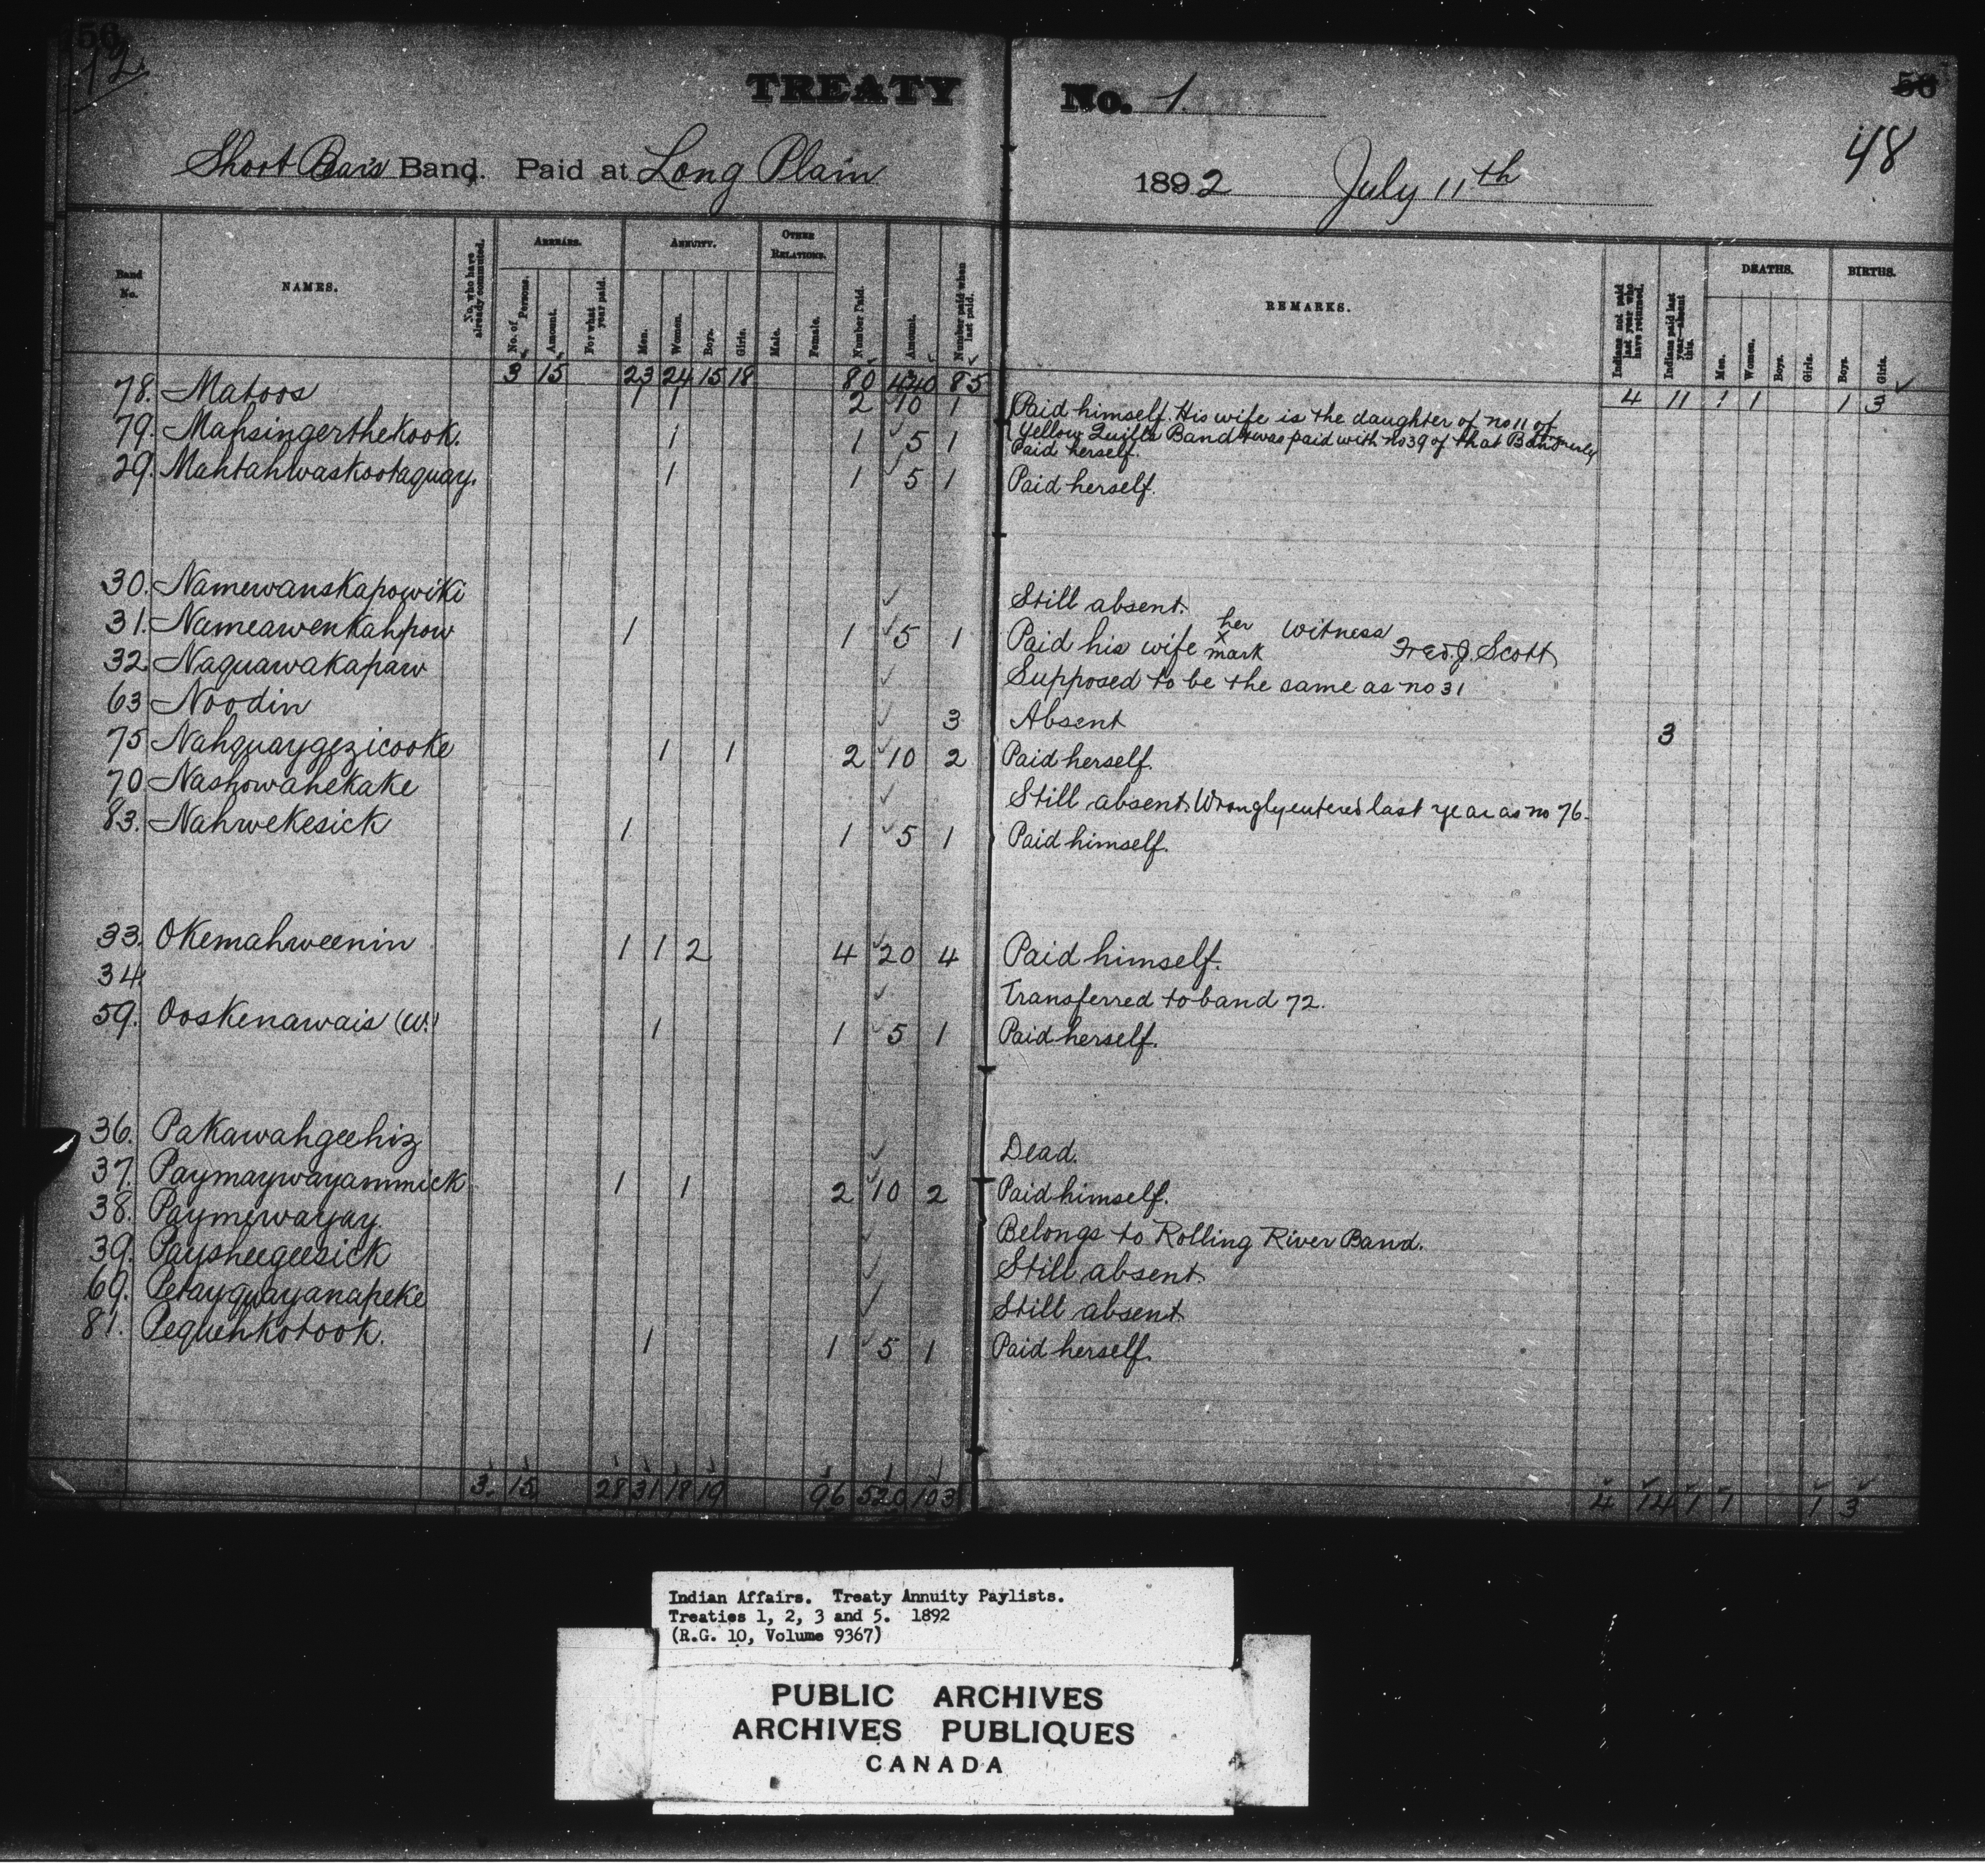 12
TREATY No. 1.
56
48
Short Bear's Band. Paid at Long Plain 1892 July 11th
Band No. NAMES. No. who have already commuted. ARREARS. No. of Persons. Amount. For what year paid. ANNUITY. Men. Women. Boys. Girls. OTHER RELATIONS. Male. Female. Number Paid. Amount. Number paid when last paid. REMARKS. Indians not paid last year who have returned. Indians paid last year—absent this. DEATHS. Men. Women. Boys. Girls. BIRTHS. Boys. Girls.
3 15 23 24 15 18 80 440 85 4 11 1 1 1 3
78. Matoos 1 1 2 10 1 Paid himself. His wife is the daughter of no 11 of
Yellow Quill's Band & was paid with no 39 of that Band
79. Mahsingerthekook. 1 1 5 1 Paid herself.
29. Mahtahwaskootaquay. 1 1 5 1 Paid herself.
30. Namewanskapowiki Still absent.
31. Nameawenkahpow 1 1 5 1 Paid his wife her x mark Witness Fred. J. Scott
32 Naquawakapaw Supposed to be the same as no 31
63 Noodin 3 Absent 3
75 Nahquaygezicooke 1 1 2 10 2 Paid herself.
70 Nashowahekake Still absent. Wrongly entered last year as no 76.
83. Nahwekesick 1 1 5 1 Paid himself.
33. Okemahweenin 1 1 2 4 20 4 Paid himself.
34. Transferred to band 72.
59. Ooskenawais (W.) 1 1 5 1 Paid herself.
36. Pakawahgeehiz Dead.
37. Paymaywayammick 1 1 2 10 2 Paid himself.
38. Paymewayay. Belongs to Rolling River Band.
39. Paysheegeesick Still absent
69. Petayquayanapeke Still absent
81. Pequehkotook. 1 1 5 1 Paid herself.
3. 15 28 31 18 19 96 520 103 4 14 1 1 1 3
Indian Affairs. Treaty Annuity Paylists.
Treaties 1, 2, 3 and 5. 1892
(R.G. 10, Volume 9367)
PUBLIC ARCHIVES
ARCHIVES PUBLIQUES
CANADA